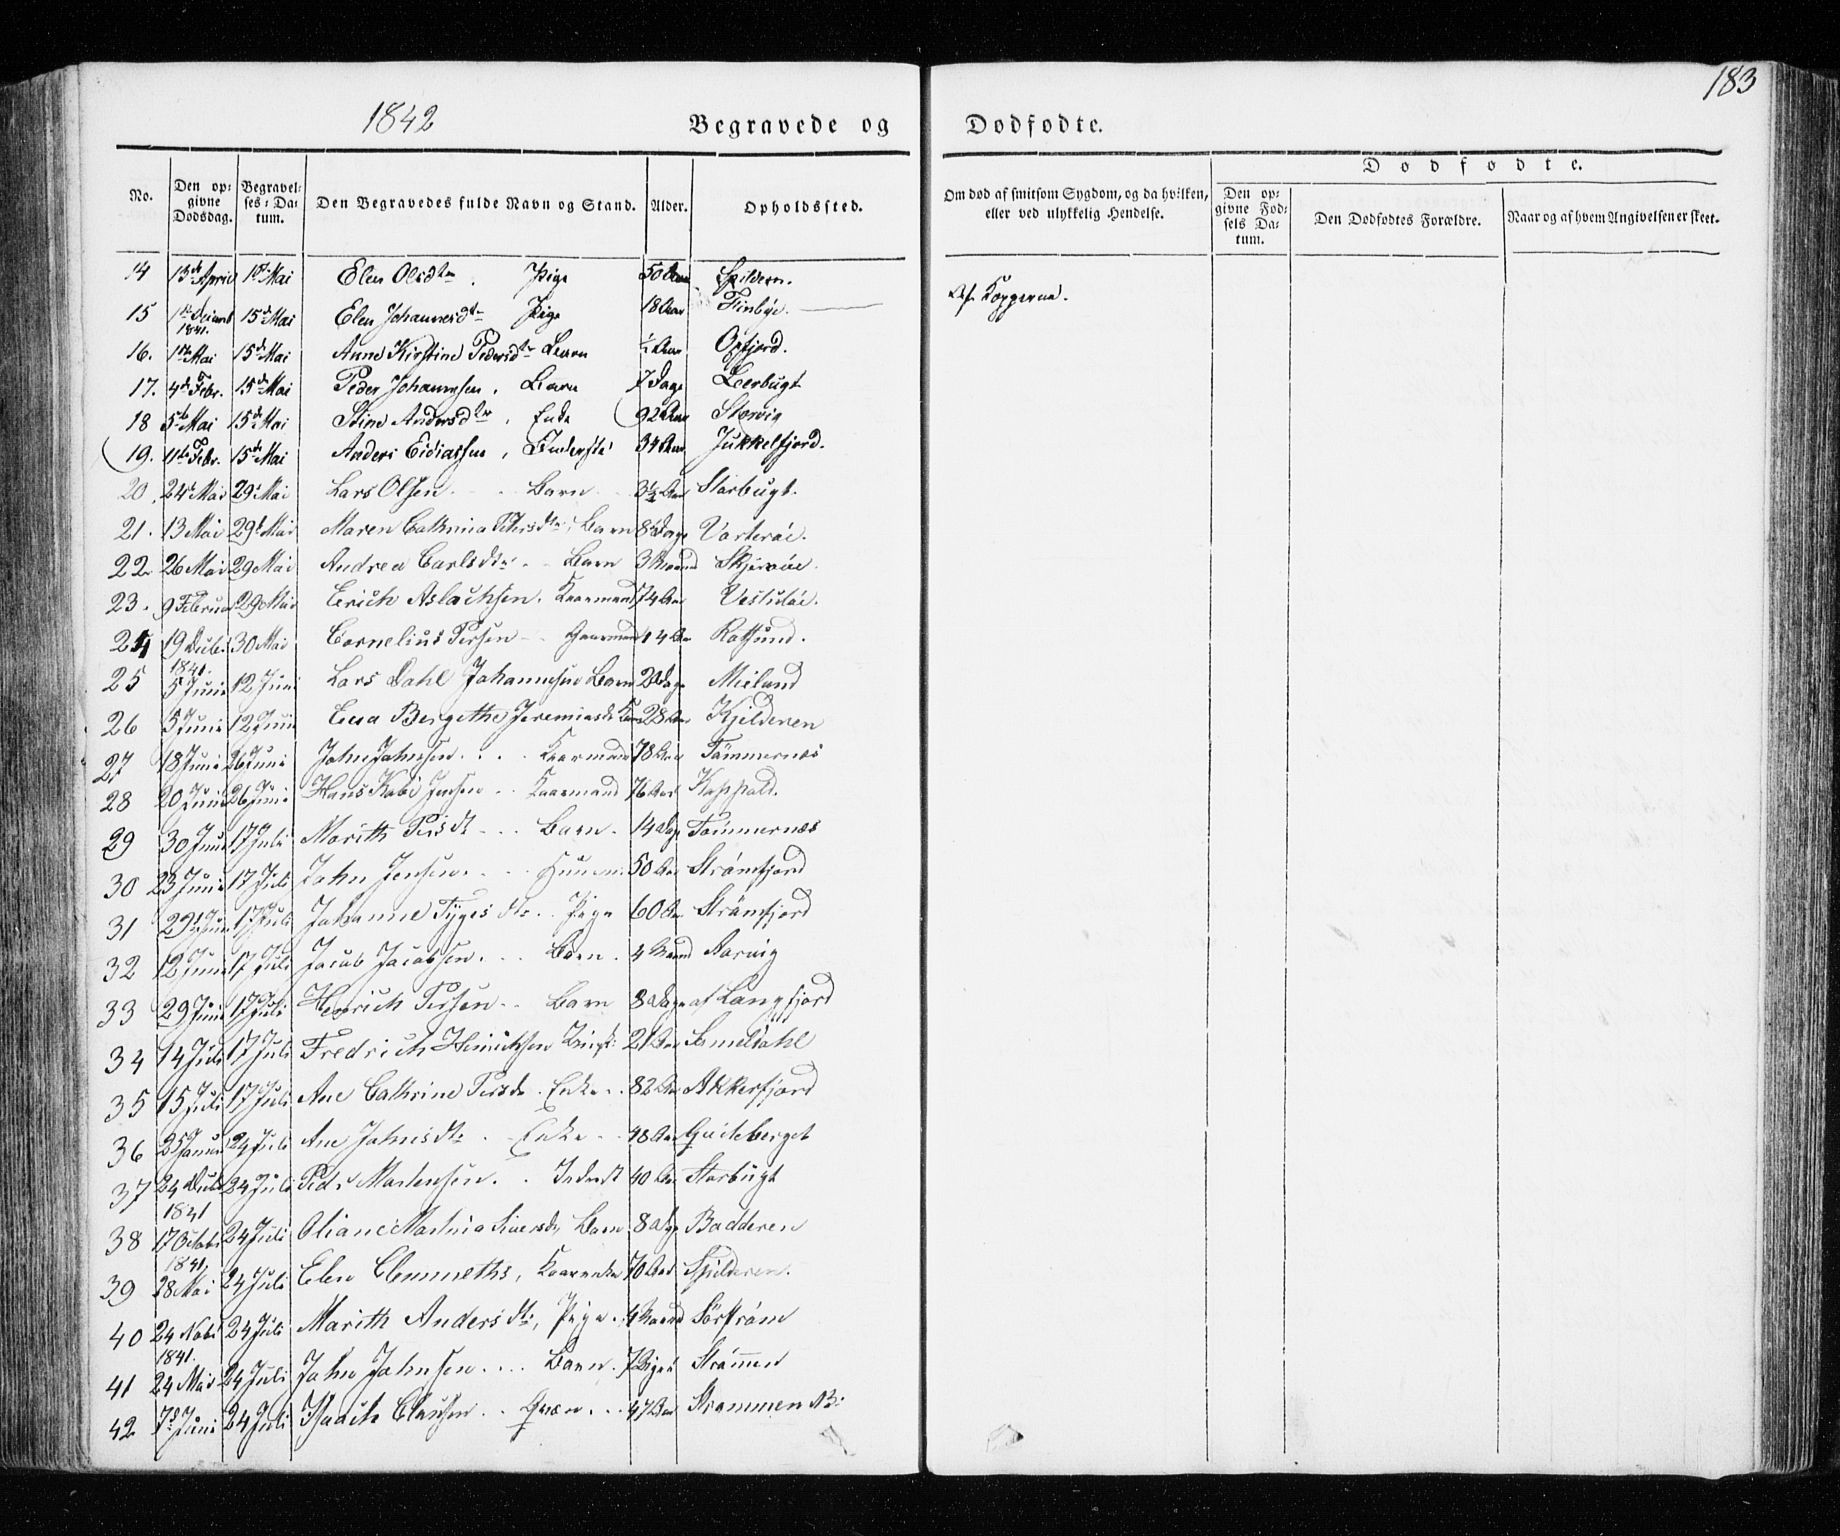 183
1842 Begravede og Dodfodte.
Dodfodte.
No. Den opgivne Dodsdag. Begravelses-Datum. Den Begravedes fulde Navn og Stand. Alder. Opholdssted. Om dod af smitsom Sygdom, og da hvilken, eller ved ulykkelig Hendelse. Den opgivne Fodsels Datum. Den Dodfodtes Forældre. Naar og af hvem Angivelsen er skeet.
14 13de April 1ste Mai Elen Olsdtr. Pige 50 Aar Spildern. Af Kopperne.
15 1ste 1841. 15de Mai Elen Johannesdtr Pige 18 Aar Finbye.
16. 1ste Mai 15de Mai Anne Kirstine Pedersdtr Barn ½ Aar Oxfjord.
17. 4de Febr. 15de Mai Peder Johannesen, Barn 7 Dage Leerbugt
18 5te Mai 15de Mai Stine Andersdtr, Enke 92 Aar Storvig
19. 11te Febr. 15de Mai Anders 34 Aar Jukkelfjord.
20. 24de Mai 29de Mai Lars Olsen. Barn 3½ Aar Storbugt.
21. 13 Mai 29de Mai Maren Cathrina Persdtr, Barn 8 Dage Vorterøe.
22 26 Mai 29 Mai Andrea Carlsdtr. Barn 3 Maand Skjervøe.
23. 9 Februar 29 Mai Erich Aslachsen. Kaarmand 74 Aar
24 19 Decbr 1841. 30 Mai Cornelius Persen Gaarmand 44 Aar Rotsund.
25 5 Juni 12 Juni Lars Dahl Johannesen Barn 28 Dage Mieland
26 5 Juni 12 Juni Eva Bergethe Jeremiasdtr 28 Aar Kjilderen
27 18 Juni 26 Juni John Johnsen. Kaarmand 78 Aar Tømmernæs
28 20 Juni 26 Juni Hans Kabe Jensen Kaarmand 76 Aar Hoppald.
29 30 Juni 17 Juli Marith Persdtr Barn. 14 Dage Tømmernæs
30 23 Juni 17 Juli John Jensen. 50 Aar Strømfjord
31 29 Juni 17 Juli Johanne Tygesdtr. Pige 60 Aar Strømfjord
32 12 Juni 17 Juli Jacob Jacobsen. Barn. 4 Maand Aarvig
33 29 Juni 17 Juli Henrich Persen Barn 8 Dage af Langfjord
34 14 Juli 17 Juli Fredrich Hinrichsen 21 Aar
35 15 Juli 17 Juli Ane Cathrine Persdtr. Enke 82 Aar Akkerfjord
36 25 Januar 24 Juli Ane Johnsdtr. Enke 48 Aar
37 24 Decbr 1841 24 Juli Pedr Mortensen. Inderst 40 Aar Storbugt
38 17 Octobr 1841, 24 Juli Oliane Martina Siversdtr Barn 8 Dage Badderen
39 28 Mai 24 Juli Elen Clemmeths, Kaarenke 70 Aar Spilderen.
40 24 Nobr 1841. 24 Juli Marith Andersdtr, Pige 4 Maand Sørstrøm
41 24 Mai 24 Juli John Johnsen. Barn. 7 Uger Strømmen
42 7de Juni 24 Juli Isaach Clausen Qvæn 47 Aar Strømmen